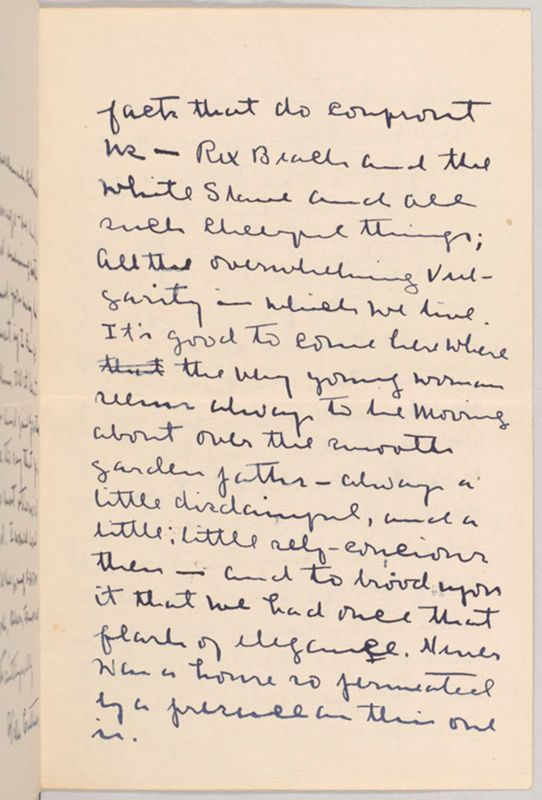 facts that do confront
us — Rex Beach and the
White Slave and all
such cheerful things;
all the overwhelming Vul-
garity in which we live.
It's good to come here where
that the very young woman
seems always to be moving
about over the smooth
garden paths — always a
little disdainful, and a
little, little self-concious
then — and to brood upon
it that we had once that
flash of elegance. Never
was a house so permeated
by a presence as this one
is.